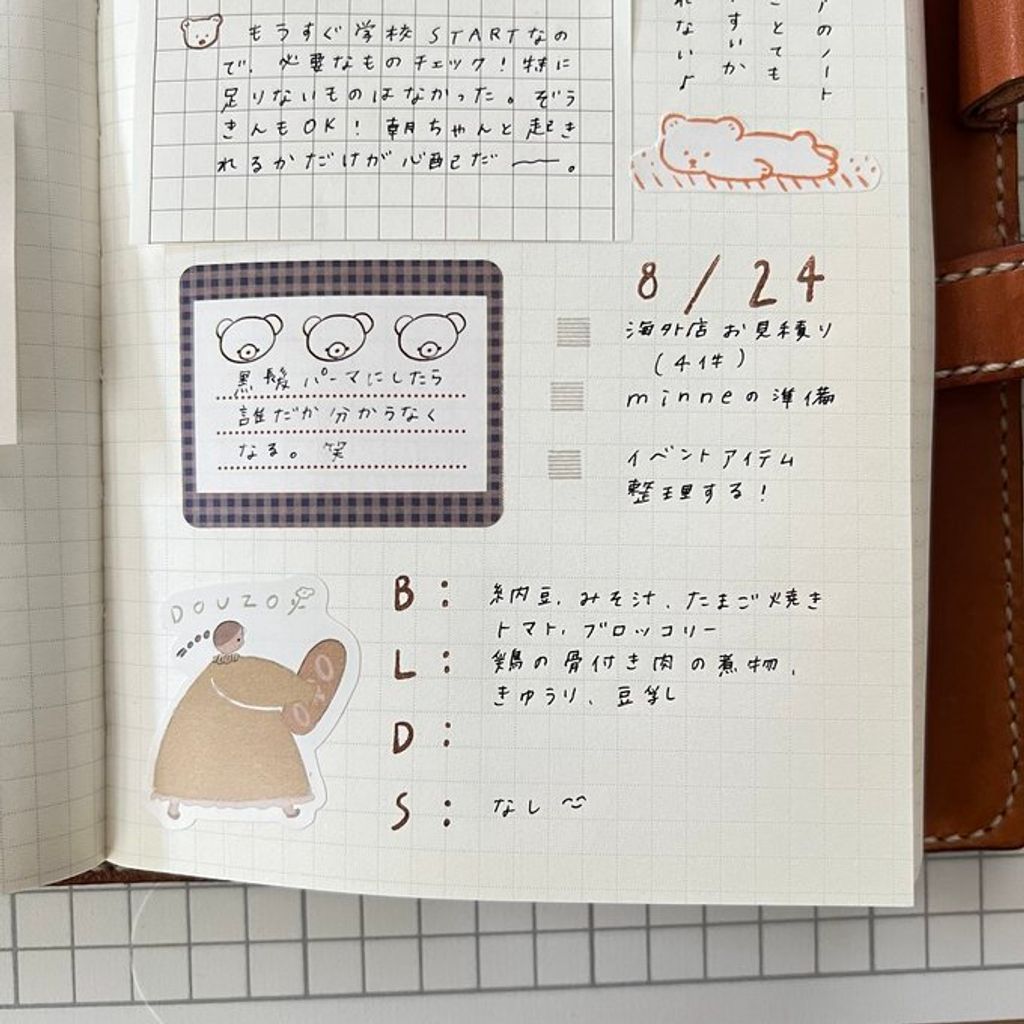 もうすぐ学校STARTなの
で、必要なものチェック！特に
足りないものはなかった。ぞう
きんもOK！朝ちゃんと起き
れるかだけが心配だ〜。
アのノート
ことても
すいか
れない♪
黒髪パーマにしたら
誰だか分からなく
なる。笑
8/24
海外店お見積り
(4件)
minneの準備
イベントアイテム
整理する！
DOUZO
B: 納豆、みそ汁、たまご焼き
トマト、ブロッコリー
L: 鶏の骨付き肉の煮物、
きゅうり、豆乳
D:
S: なし